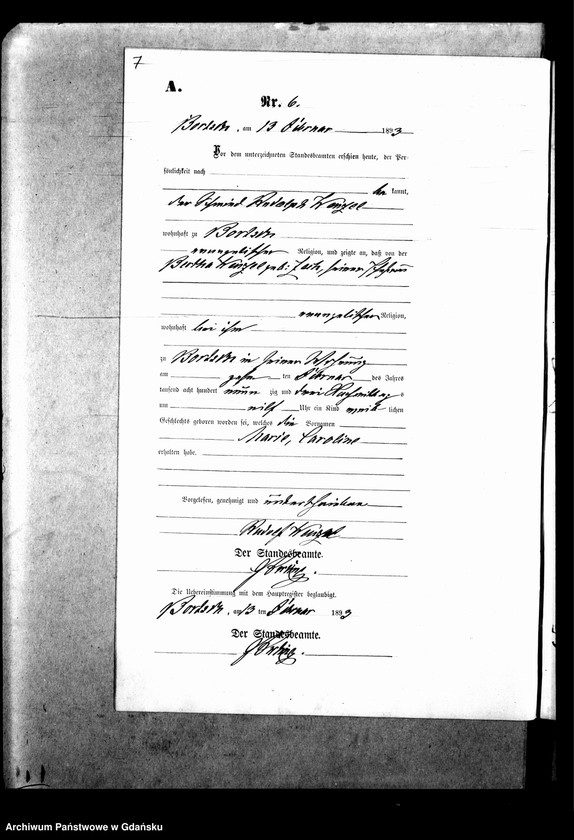 7
A.
Nr. 6.
Bordzin, am 13 Februar 1893
Vor dem unterzeichneten Standesbeamten erschien heute, der Per-
sönlichkeit nach
be kannt,
der Schmied Rudolph Kanzel
wohnhaft zu
evangelischer Religion, und zeigte an, daß von der
Bertha geb: seiner Ehefrau
evangelischer Religion,
wohnhaft bei ihm
zu in seiner Wohnung
am zehn ten Februar des Jahres
tausend acht hundert neun zig und drei Nachmittag s
um Uhr ein Kind weib lichen
Geschlechts geboren worden sei, welches die Vornamen
Marie, Caroline
erhalten habe.
Vorgelesen, genehmigt und unterschrieben
Rudolf
Der Standesbeamte.
Die Uebereinstimmung mit dem Hauptregister beglaubigt.
am 13 ten Februar 1893
Der Standesbeamte.
Archiwum Państwowe w Gdańsku